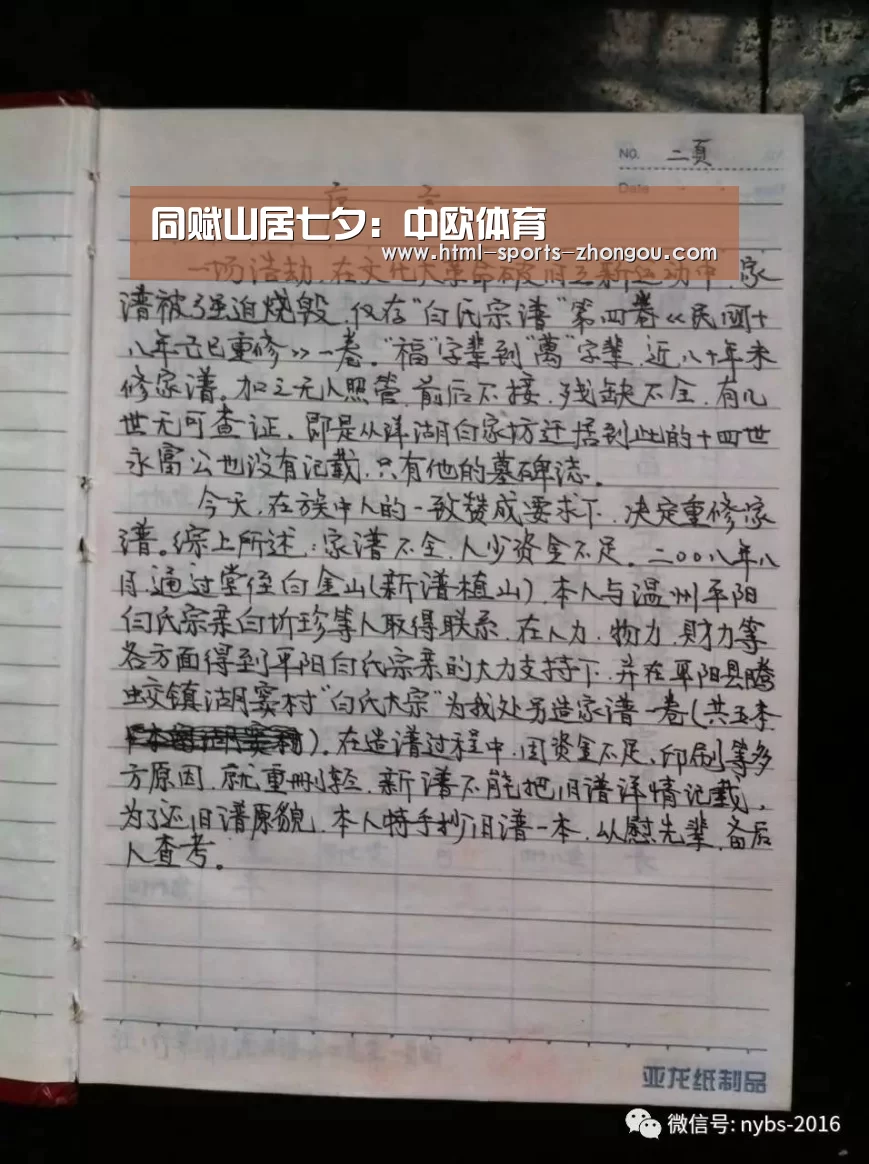 NO. 二頁
Date
同赋山居七夕：中欧体育
www.html-sports-zhongou.com
一场浩劫，在文化大革命破旧立新运动中，家
谱被强迫烧毁，仅存"白氏宗谱"第四卷《民国十
八年己巳重修》一卷。"福"字辈到"萬"字辈，近八十年未
修家谱。加之无人照管，前后不接，残缺不全，有几
世无可查证。即是从洋湖白家坊迁居到此的十四世
永富公也没有记载，只有他的墓碑志。
今天，在族中人的一致赞成要求下，决定重修家
谱。综上所述：家谱不全，人少资金不足。二00八年八
月通过堂侄白金山(新谱植山)，本人与温州平阳
白氏宗亲白圻珍等人取得联系，在人力，物力，财力等
各方面得到平阳白氏宗亲的大力支持下，并在平阳县腾
蛟镇湖窦村"白氏大宗"为我处另造家谱一卷(共五本
)。在造谱过程中，因资金不足，印刷等多
方原因，就重删轻，新谱不能把旧谱详情记载，
为了还旧谱原貌，本人特手抄旧谱一本，以慰先辈，备后
人查考。
亚龙纸制品
微信号: nybs-2016